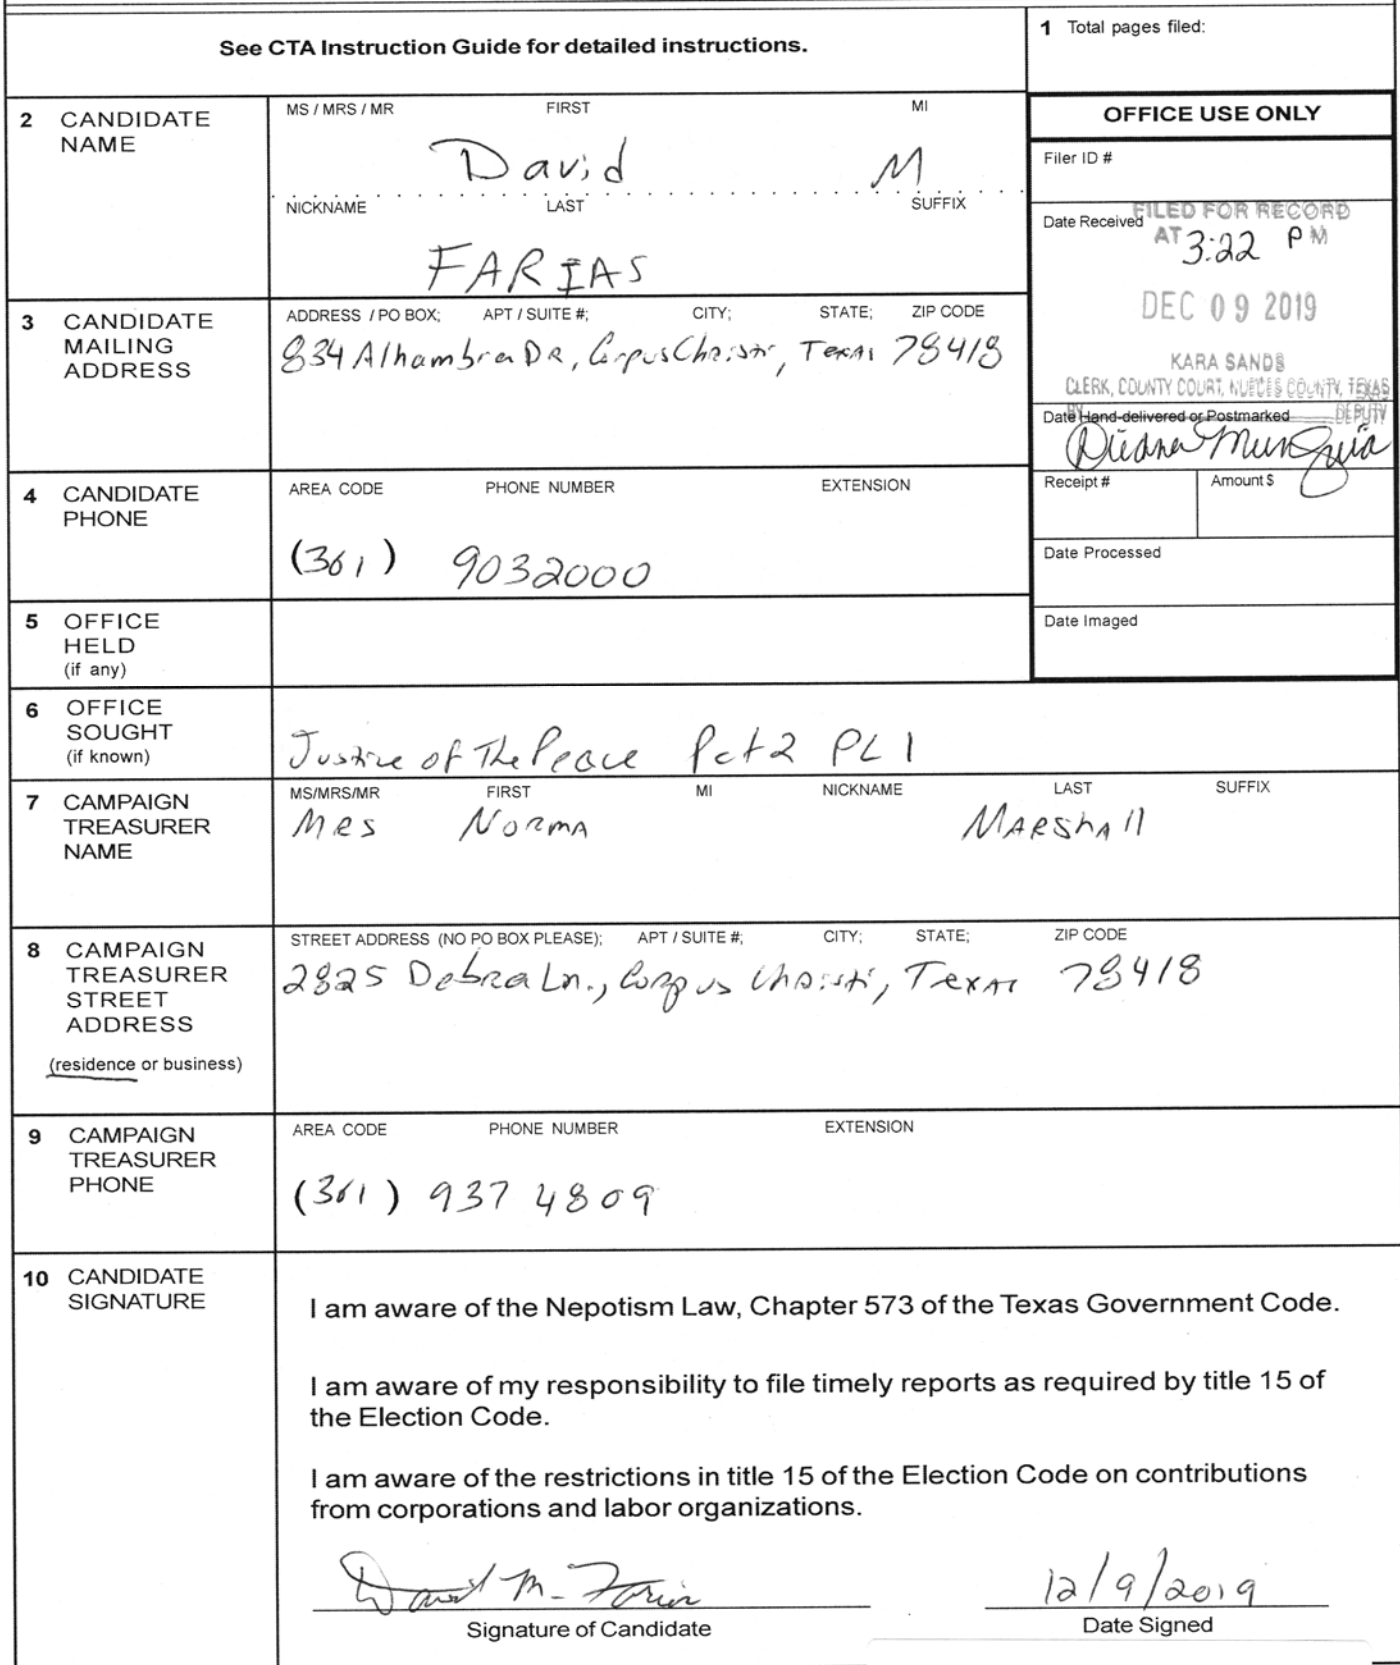 See CTA Instruction Guide for detailed instructions.
1 Total pages filed:
2 CANDIDATE NAME
MS / MRS / MR FIRST MI
David M
NICKNAME LAST SUFFIX
FARIAS
OFFICE USE ONLY
Filer ID #
Date Received
FILED FOR RECORD
AT 3:22 PM
DEC 09 2019
KARA SANDS
CLERK, COUNTY COURT, NUECES COUNTY, TEXAS
BY DEPUTY
Date Hand-delivered or Postmarked
Receipt # Amount $
Date Processed
Date Imaged
3 CANDIDATE MAILING ADDRESS
ADDRESS / PO BOX; APT / SUITE #; CITY; STATE; ZIP CODE
834 Alhambra DR, Corpus Christi, Texas 78418
4 CANDIDATE PHONE
AREA CODE PHONE NUMBER EXTENSION
(361) 9032000
5 OFFICE HELD (if any)
6 OFFICE SOUGHT (if known)
Justice of The Peace Pct 2 PL 1
7 CAMPAIGN TREASURER NAME
MS/MRS/MR FIRST MI NICKNAME LAST SUFFIX
Mrs Norma Marshall
8 CAMPAIGN TREASURER STREET ADDRESS
(residence or business)
STREET ADDRESS (NO PO BOX PLEASE); APT / SUITE #; CITY; STATE; ZIP CODE
2825 Debra Ln., Corpus Christi, Texas 78418
9 CAMPAIGN TREASURER PHONE
AREA CODE PHONE NUMBER EXTENSION
(361) 937 4809
10 CANDIDATE SIGNATURE
I am aware of the Nepotism Law, Chapter 573 of the Texas Government Code.
I am aware of my responsibility to file timely reports as required by title 15 of
the Election Code.
I am aware of the restrictions in title 15 of the Election Code on contributions
from corporations and labor organizations.
David M. Farias 12/9/2019
Signature of Candidate Date Signed